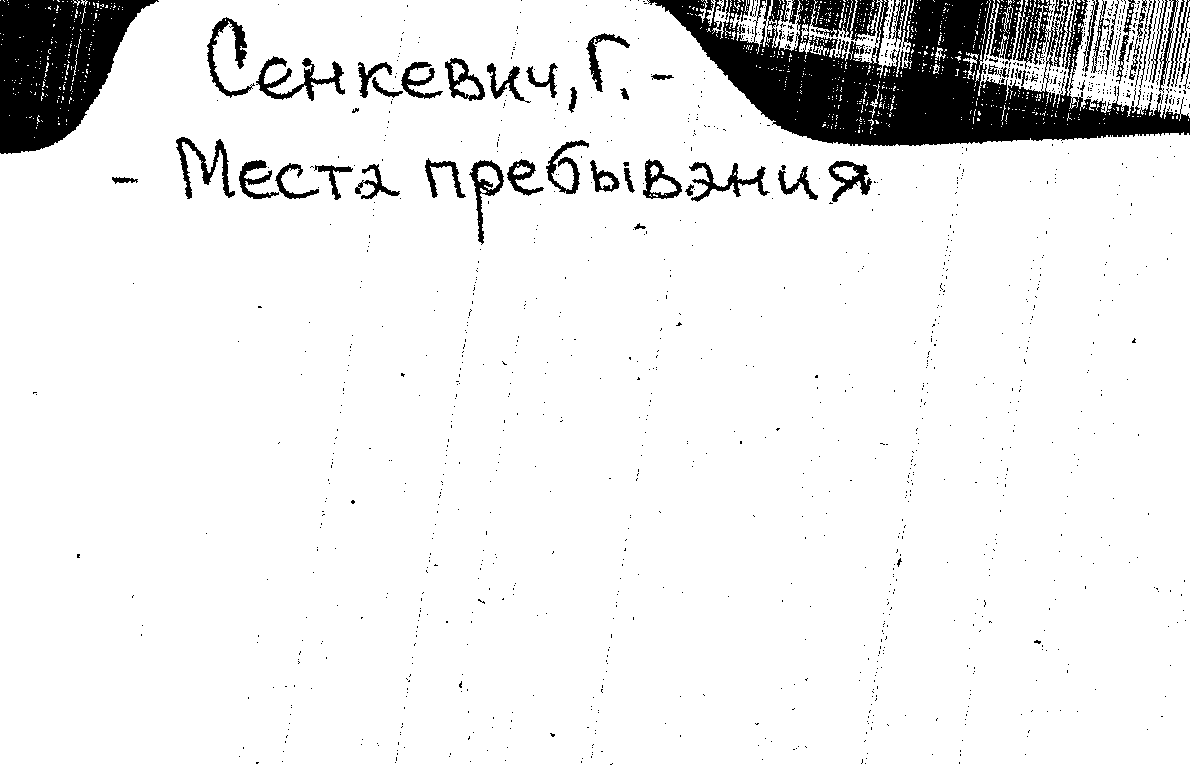 Сенкевич, Г. -
- Места пребывания